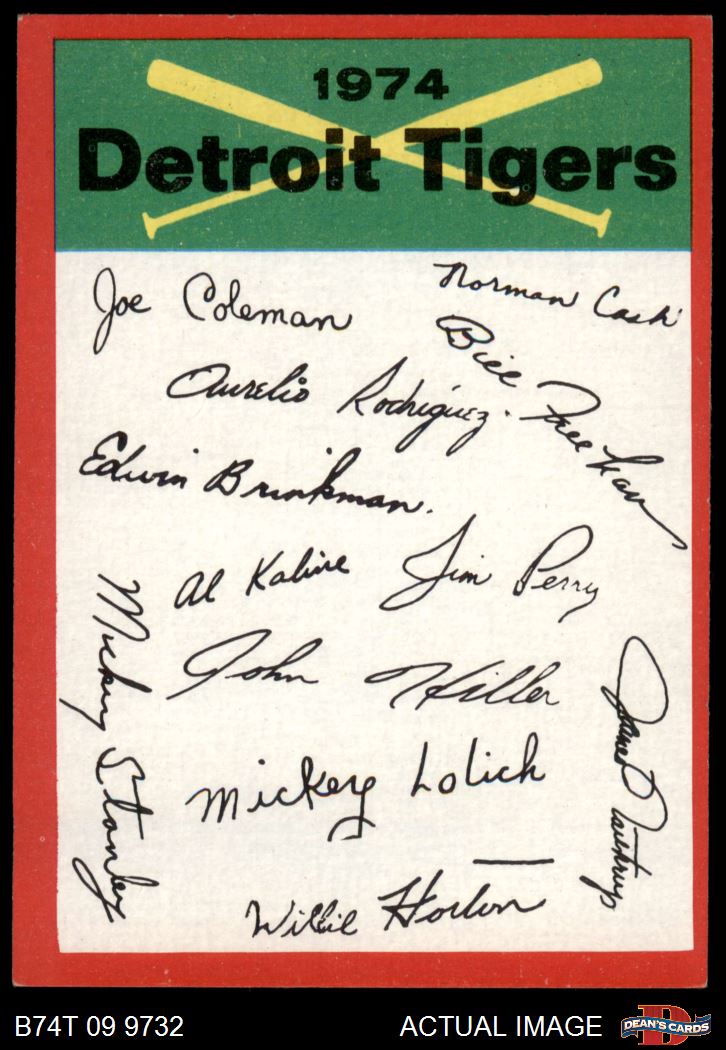 1974
Detroit Tigers
Joe Coleman
Norman Cash
Bill Freehan
Aurelio Rodriguez.
Edwin Brinkman.
Al Kaline
Jim Perry
Mickey Stanley
John Hiller
James Northrup
Mickey Lolich
Willie Horton
B74T 09 9732
ACTUAL IMAGE
D
DEAN'S CARDS